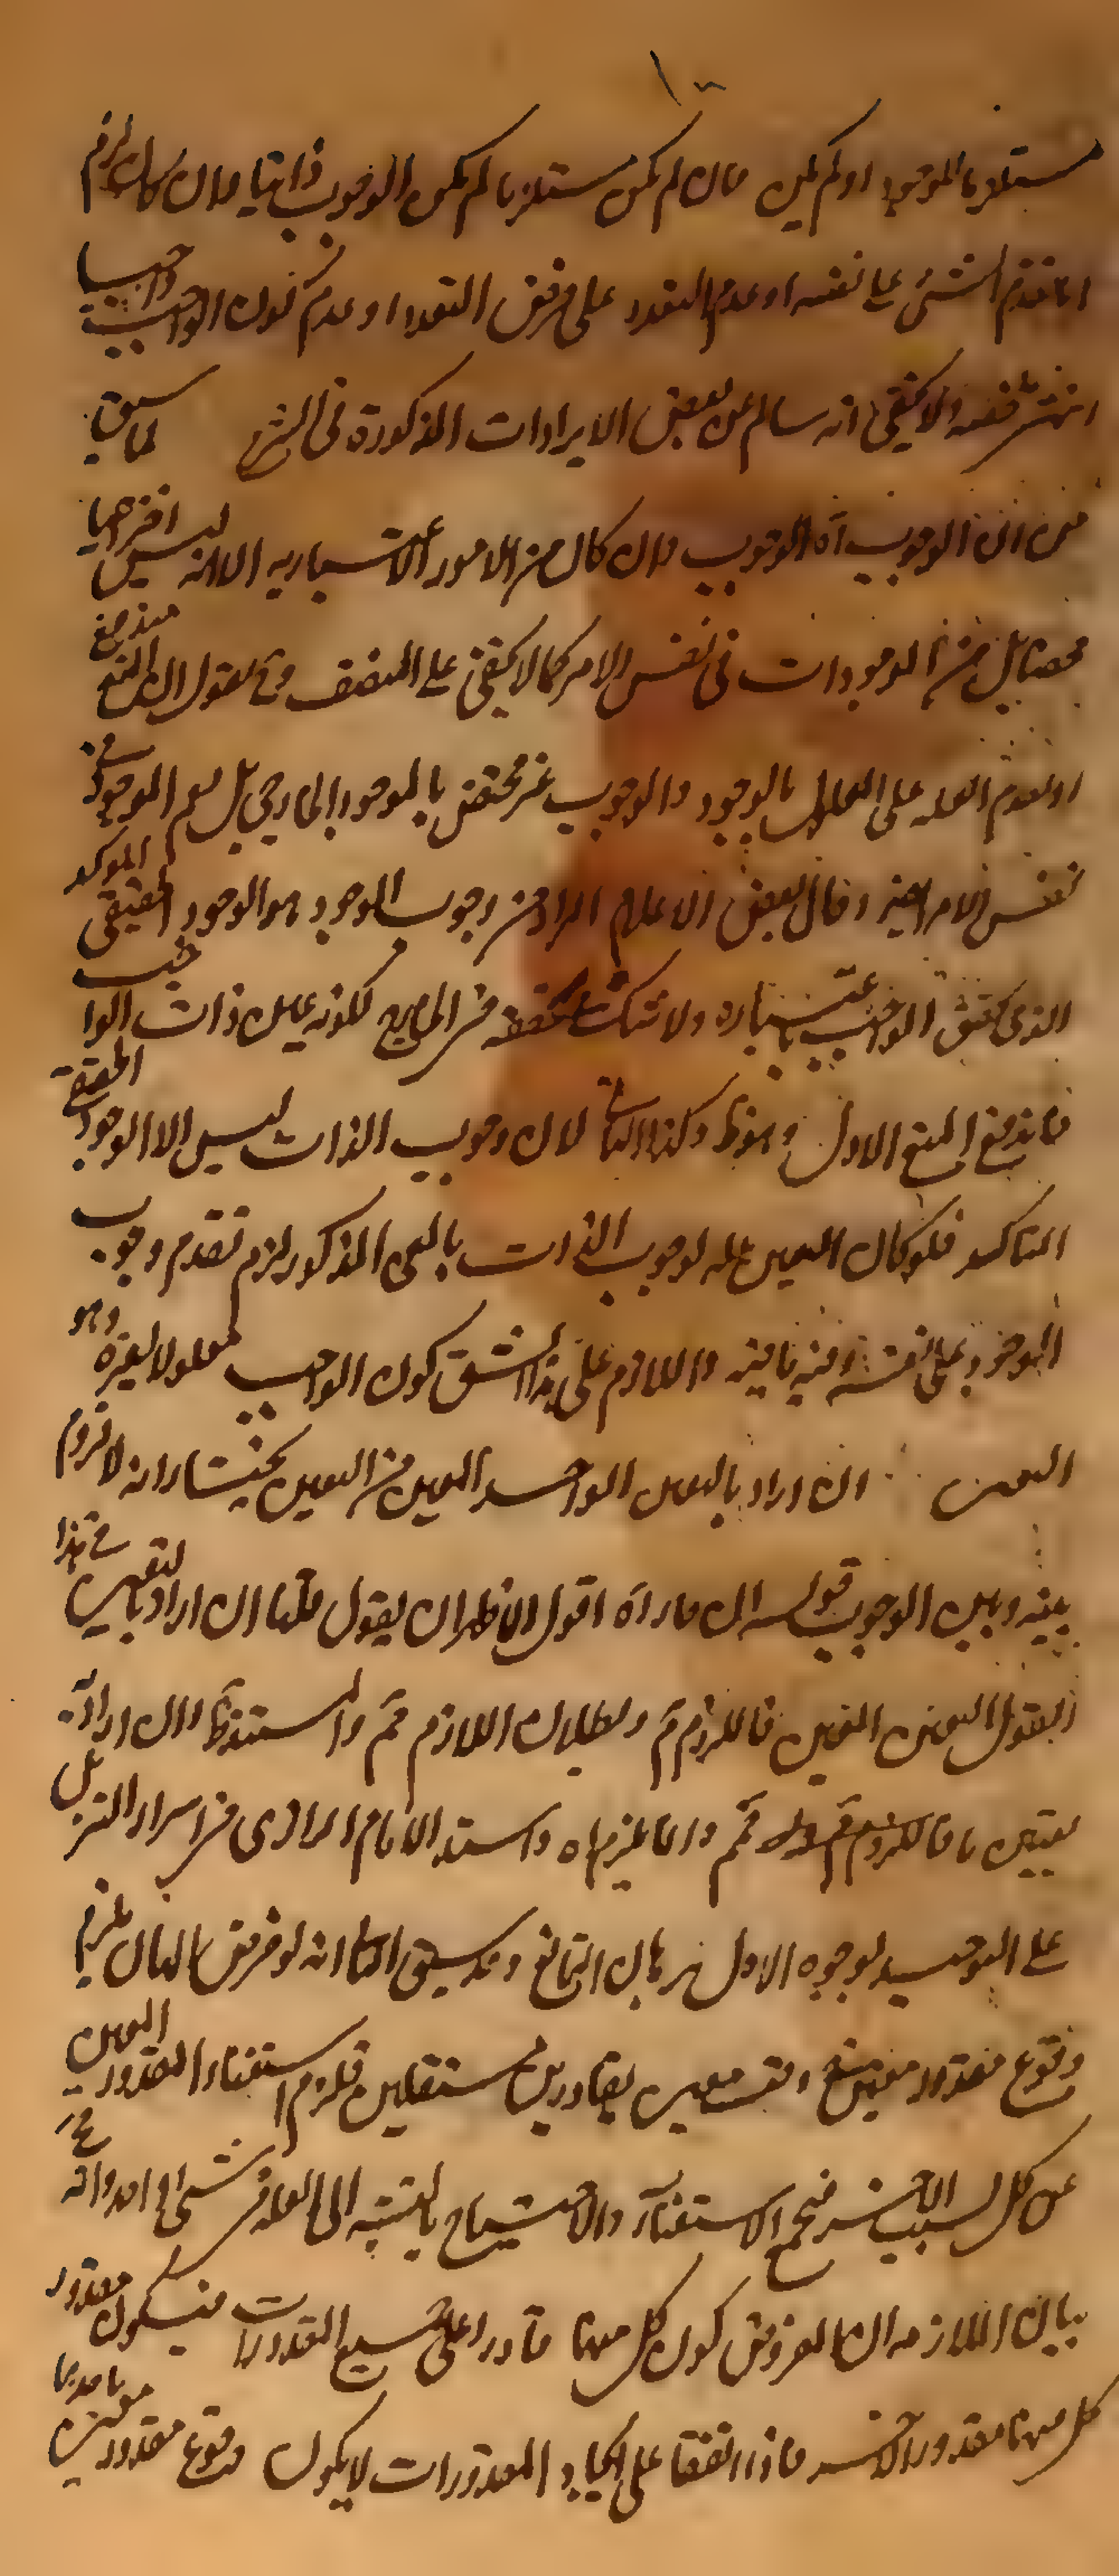 مستلزما للوجود او لم يكن فان لم يكن مستلزما لم يكن الوجوب ذاتيا وان كان لزم
اما تقدم الشئ على نفسه او عدم التعدد على فرض التعدد او عدم كون الواجب واجبا
انتهى ولا يخفى انه سالم عن بعض الايرادات المذكورة فى الشرح لما سبق
من ان الوجوب آه الوجوب وان كان من الامور الاعتبارية الا انه ليس اختراعيا
بل من الموجودات فى نفس الامر كما لا يخفى على المنصف وح نقول المنع مندفع
اذ تقدم العلة على المعلول بالوجود والوجوب غير مختص بالموجود الخارجى بل يعم الموجود فى
نفس الامر وقال بعض الاعلام المراد من وجوب الوجود هو الوجود الحقيقى الموكد
الذى يتحقق الواجب باعتباره ولا شك فى تحققه فى الخارج لكونه عين ذات الواجب
فاندفع المنع الاول وهو ظ وكذا الثانى لان وجوب الذات ليس الا الوجود الحقيقى
المتاكد فلو كان التعين علة لوجوب الذات بالمعنى المذكور لزم تقدم وجوب
الوجود على نفسه وفيه ما فيه واللازم على هذا الشق كون الواجب معلولا لغيره وهو
التعين ان اراد بالتعين الواحد المعين من التعين يختار انه لا لزوم
بينه وبين الوجوب قوله ان اراد آه اقول الاظهر ان يقول قلنا ان اراد بالتعين فى هذا
القول التعين المعين فاللزوم مم وبطلان اللازم مم والسند ظ وان اراد به
تعين ما فاللزوم مم وان ما يلزم آه واستدل الامام الرازى فى اسرار التنزيل
على التوحيد لوجوه الاول برهان التمانع وقد سبق الثانى انه لو فرض الهان يلزم
وقوع مقدور معين فى وقت معين بقادرين مستقلين فلزم استغناء المقدور المعين
عن كل لسبب الآخر فيجتمع الاستغناء والاحتياج بالنسبة الى العلة فى شئ واحد وانه مح
بيان الملازمة ان المفروض كون كل منهما قادرا على جميع المقدورات فيكون مقدور
كل منهما مقدور الآخر فاذا اتفقا على ايجاد المقدورات لا يكون وقوع مقدور معين باحدهما